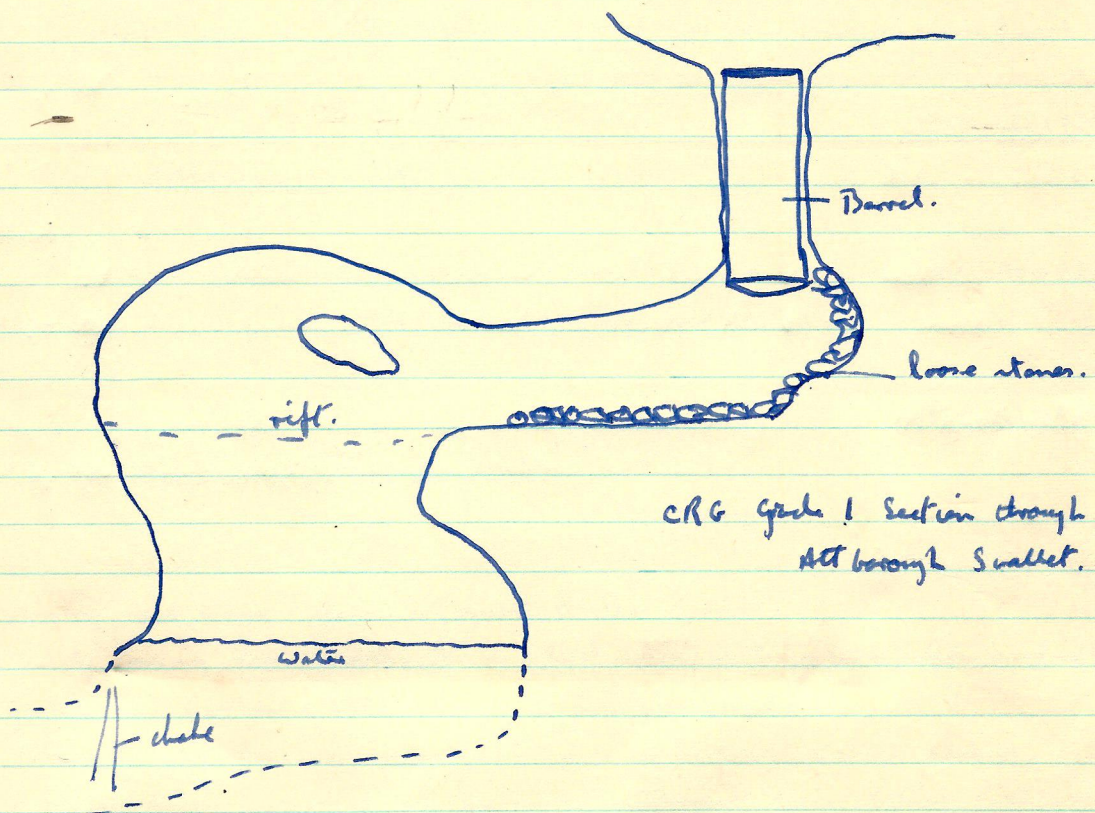 Barrel.
loose stones.
rift.
CRG Grade 1 Section through
Attborough Swallet.
Water
choke